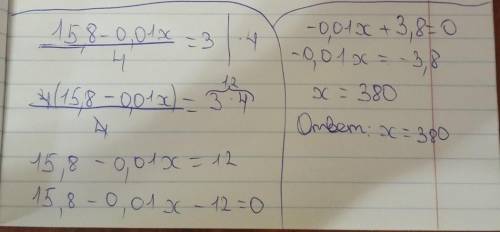 (15,8-0,01x)/4 = 3 | ·4
4(15,8-0,01x)/4 = 3·4 12
15,8 - 0,01x = 12
15,8 - 0,01x - 12 = 0
-0,01x + 3,8 = 0
-0,01x = -3,8
x = 380
Ответ: x = 380